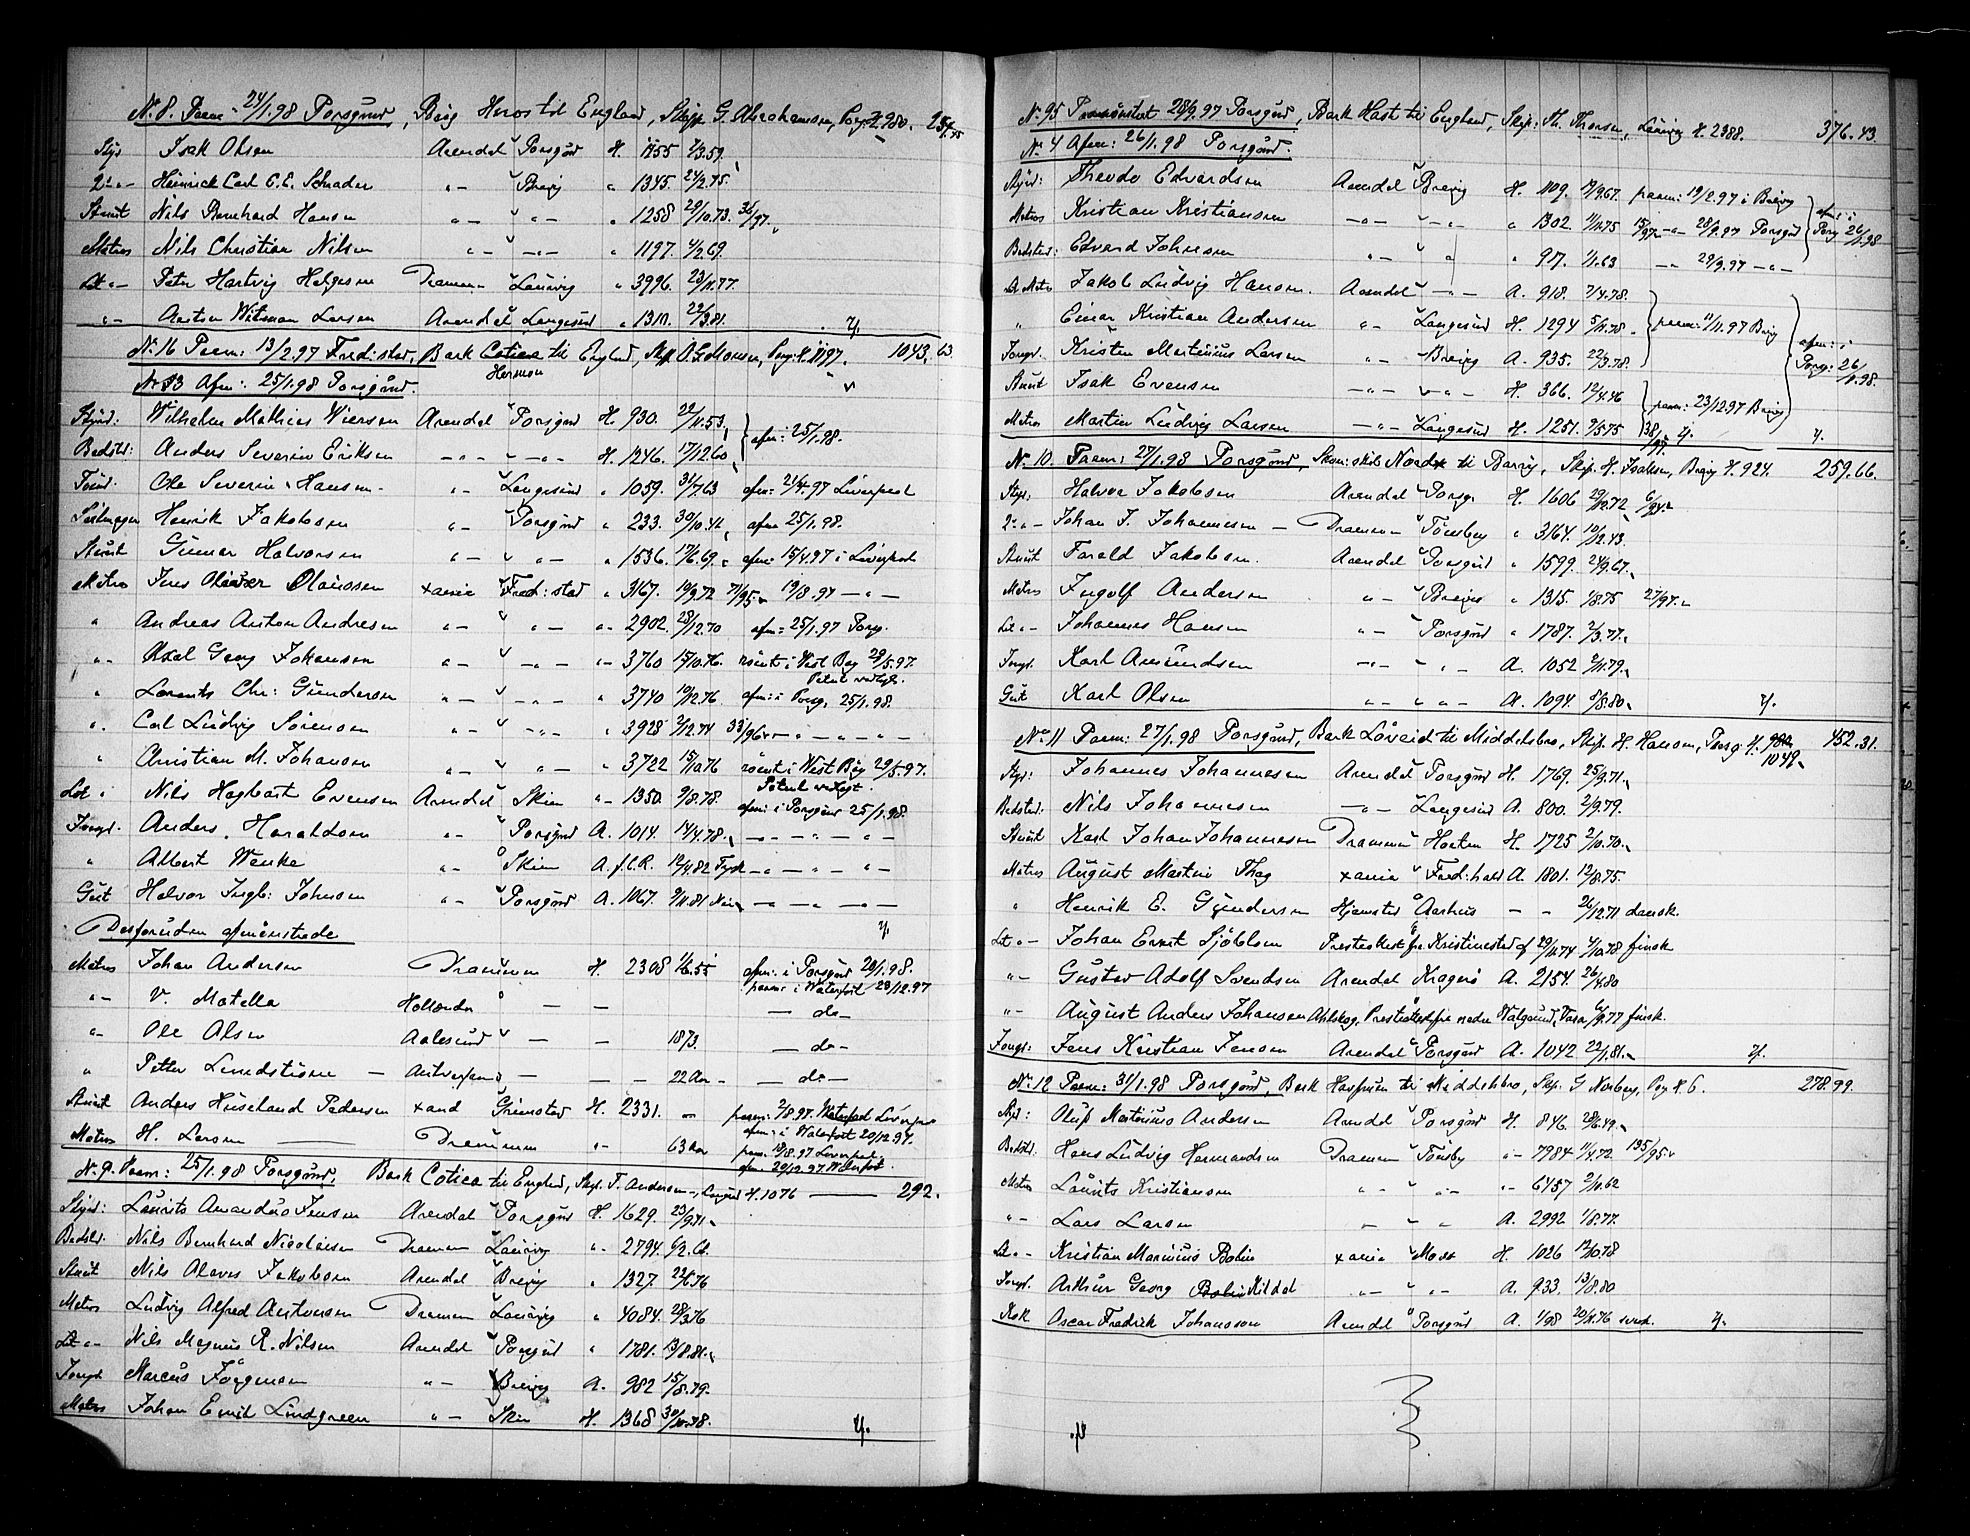 No. 8. Paam: 24/1.98 Porsgrund, Brig Huros til England, Skip. G. Abrahamsen, Porsg. H. 980.
Styr Isak Olsen Arendal Porsgrd H. 1155 3.59.
2den " - Heinrich Carl C. E. Schrader " - Brevig " 1345. 24/2.75.
Stuut Nils Bernhard Hansen " - " - " 1258 29/10.73.
Matros Nils Christian Nilsen " - " - " 1197. 4/2.69.
Let " - Peter Hartvig Helgesen Drammen Laurvig " 3996. 23/11.77.
" - Anton Witsman Larsen Arendal Langesund " 1310. 22/3.81.
No. 16 Paam: 13/2.97 Fred:stad, Bark Cotica til England, Skip. O. G. Monsen, Porsg. H. 1043,63
Herman
No. 3 Afm: 25/1.98 Porsgrund.
Styrd: Wilhelm Mathias Wiersen Arendal Porsgrd H. 930. 22/11.53.
Bedstd: Anders Severin Eriksen - " - " - H. 1246. 17/12.60 afm: 25/1.98.
Tømd: Ole Severin Hansen " - Langesund " 1059. 31/7.63 afm: 21/4.97 Liverpool
Seilmager Henrik Jakobsen " - Porsgrund " 233. 30/10.42 afm 25/1.98.
Stuut Gunnar Halvorsen " - " " - " 1536. 17/6.69. afm: 15/4.97 i Liverpool
Matros Jens Olaves Olaussen xania Fred:stad " 3167. 19/9.72 71/95 19/8.97 - " -
" Andreas Anton Andresen " - " " - " 2902. 28/12.70 afm: 25/1.97 Porsg.
" Axel Georg Johansen " - " - " - " 3760 15/10.76. rømt i West Bay 29/5.97.
" Lorents Chr: Gundersen " - " - " - " 3740 19/12.76 afm: i Porsg. 25/1.98.
" Carl Ludvig Sørensen " - " - " - 3928 2/12.74
" Christian M. Johansen " - " " - " 3722 15/10.76 rømt i West Bay 29/5.97.
Let " Nils Hagbart Evensen Arendal Skien " - 1350. 9/8.78. afm: i Porsgrund 25/1.98.
Jungd. Anders. Haraldsen " - Porsgrund A. 1014. 14/4.78. - " - " - " -
" Albert Wenke " - Skien A. f. C. R. 12/4.82 Tysk - " - " - " -
Gut Halvor Ingb: Johnsen " - Porsgrund A. 1067. 9/11.81 - " - " -
Desforuden afmønstrede
Matros Johan Andersen Drammen H. 2308 1/6.55 afm: i Porsgrund 29/1.98.
paam: i Waterfort 23/12.97
" - V. Motella Hollænder - - - do -
" - Ole Olsen Aalesund - - 1873. - do -
" Petter Lundstrøm - Antverpen - - - 22 Aar - - do -
Stuut Anders Huseland Pedersen xand Grimstad H. 2331. - paam: 2/8.97. Liverpool
afm: i Waterfort 20/12.97.
Matros H. Larsen Drammen " - 63 Aar paam: 19/8.97 Liverpool
afm. 29/12.97 Waterfort.
No. 9. Paam: 25/1.98 Porsgrund. Bark Cotica til England, Skip. T. Andersen, Langsund H. 1076 292.
Styrd: Laurits Amandus Jensen Arendal Porsgrund H. 1629. 23/9.71
Bedstd. Nils Bernhard Nicolaisen Drammen Laurvig " - 2794. 6/2.61.
Stuut Nils Olaves Jakobsen Arendal Brevig " 1327. 22/6.76
Matros Ludvig Alfred Antonsen Drammen Laurvig " 4084. 28/3.76
Let " - Nils Magnus R. Nilsen Arendal Porsgrd " 1781. 13/8.81.
Jungd. Marcus Jørgensen " - Brevig A. 982 15/8.79.
Matros Johan Emil Lindgreen " - Skien H. 1368 30/10.78.
No. 95 Paamønstret 28/9.97 Porsgrund, Bark Hast til England, Skip: Th. Thorsen, Laurvig H. 2388. 376.43.
No. 4 Afm: 26/1.98 Porsgrund.
Styrd: Theodo Edvardsen Arendal Brevig H. 1109. 19/9.67. paam: 19/2.97 i Brevig
Matros Kristian Kristiansen - " - " - " - " 1302. 11/11.75 15/97 - " - 28/9.97 Porsgrd afm: i Porsg 26/1.98
Bedstd: Edvard Johnsen " - " " 917. 1/1.63 - " - 29/9.97 - " -
Let Matros Jakob Ludvig Hansen. Arendal - " - A. 918. 7/4.78.
" Einar Kristian Andersen " - Langesund H. 1294 5/11.78. paam: 11/11.97 Brevig
Jungd. Kristen Martinius Larsen " - Brevig A. 935. 22/3.78. afm: i Porsg: 26/1.98.
Stuut Isak Evensen - " - " - " - H. 366. 12/4.46
Matros Martin Ludvig Larsen - " - Langesund H. 1251. 9/5.75 38/97. paam: 23/12.97 Brevig
No. 10. Paam: 27/1.98 Porsgrund, Skon: skib Nordk til Barry, Skip. H. Isaksen, Brevig H. 924. 259.66.
Styr: Halvor Jakobsen Arendal Porsg. H. 1606 29/12.72
2den " - Johan J. Johannesen - Drammen Tønsberg " 3164. 10/12.43.
Stuut Farald Jakobsen. Arendal Porsgrund " 1599. 24/9.67.
Matros Ingolf Andersen " - Brevig " 1315. 1/8.75 27/97.
Let " - Johannes Hansen " - Porsgrund " 1787. 2/3.77.
Jungd. Karl Amundsen - " - " " - A. 1052 9/11.79.
Gut Karl Olsen " " " " - A. 1094. 5/8.80.
No. 11 Paam: 27/1.98 Porsgrund, Bark Løveid til Middelsbro, Skip. H. Hansen, Porsg: H. 452.31.
1049.
Styr: Johannes Johannesen Arendal Porsgrund H. 1769. 25/9.71.
Bedstd: Nils Johannesen - " - Langesund A. 800. 2/9.79.
Stuut Karl Johan Johannesen Drammen Horten H. 1725 2/10.70.
Matros August Martin Thag xania Fred:hald A. 1801. 12/8.75.
" Henrik E. Gundersen Hjemsted Aarhus - - 26/12.71 dansk.
Let " - Johan Ernst Sjøblom Presteattest fra Kristinestad af 29/11.74 4/10.78 finsk
" - Gustav Adolf Svendsen Arendal Kragerø A. 2154. 26/4.80
" - August Anders Johansen Ahlskog, Presteattest fra nedre Walgrund, Vasa, 6/9.77 finsk.
Jungd: Jens Kristian Jensen Arendal Porsgrund A. 1042 22/1.81.
No. 12 Paam: 31/1.98 Porsgrund, Bark Havfruen til Middelsbro, Skip. G Norberg, Porsg H. 6. 278.99.
Styr: Oluf Martinius Andersen Arendal Porsgrund H. 846. 28/6.49.
Bedstd. Hans Ludvig Hermandsen Drammen Tønsbg " - 7984 11/4.72. 135/95
Matros Laurits Kristiansen " - " " - " - 6457 2/10.62
" - Lars Larsen - " " A. 2992 1/8.77.
Let " - Kristian Marinius Bolin xania Moss H. 1026 12/10.78
Jungd. Arthur Georg Kildal " - " " - A. 933. 13/8.80
Kok Oscar Fredrik Johansson Arendal Porsgrund A. 198 20/11.76 svensk.